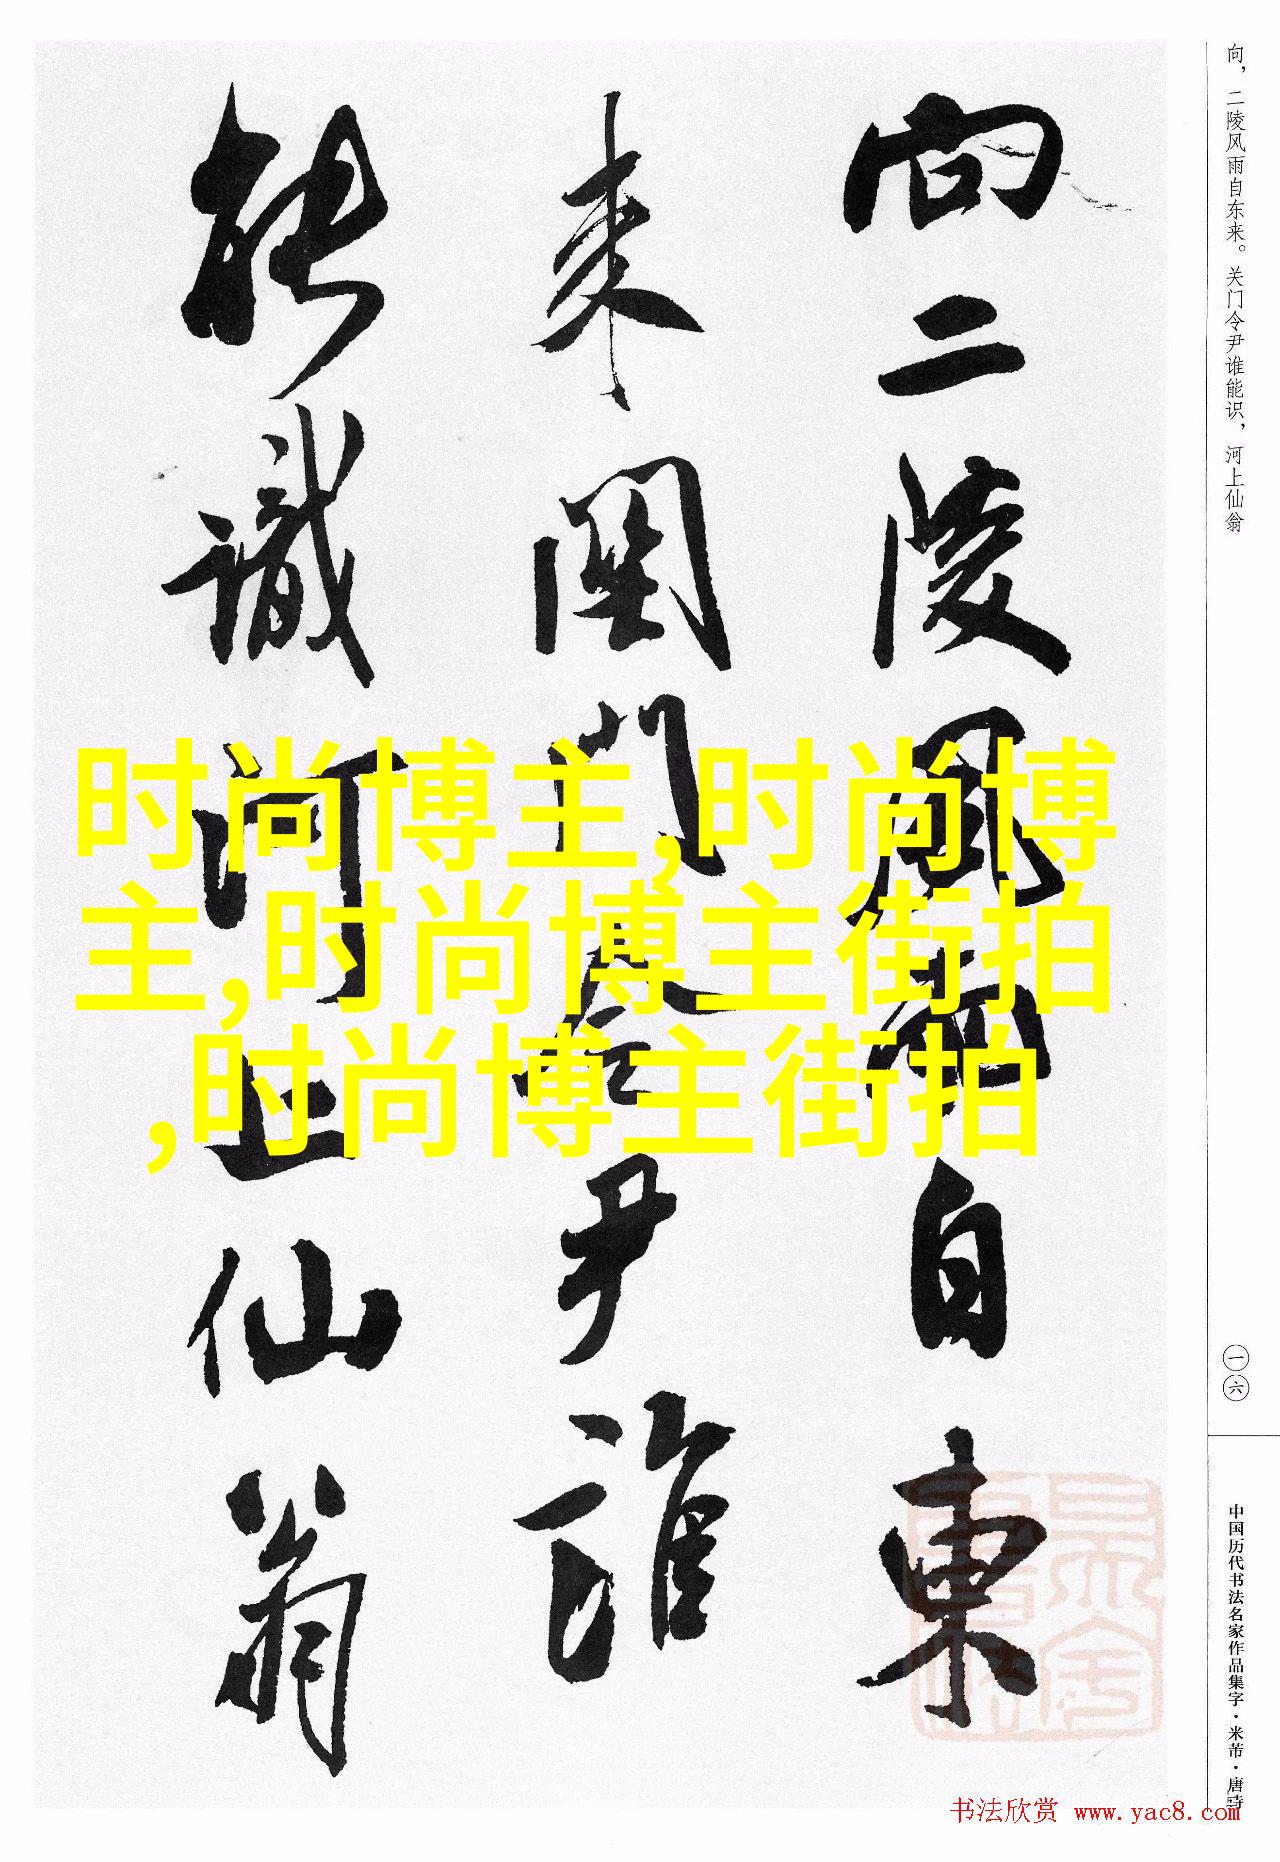 向二陵风雨自東
来関門令尹誰
能識河上仙翁
时尚博主,时尚博
主,时尚博主街拍
,时尚博主街拍
向，二陵风雨自东来。关门令尹谁能识，河上仙翁
一六
中国历代书法名家作品集字·米芾·唐诗
书法欣赏 www.yac8.com